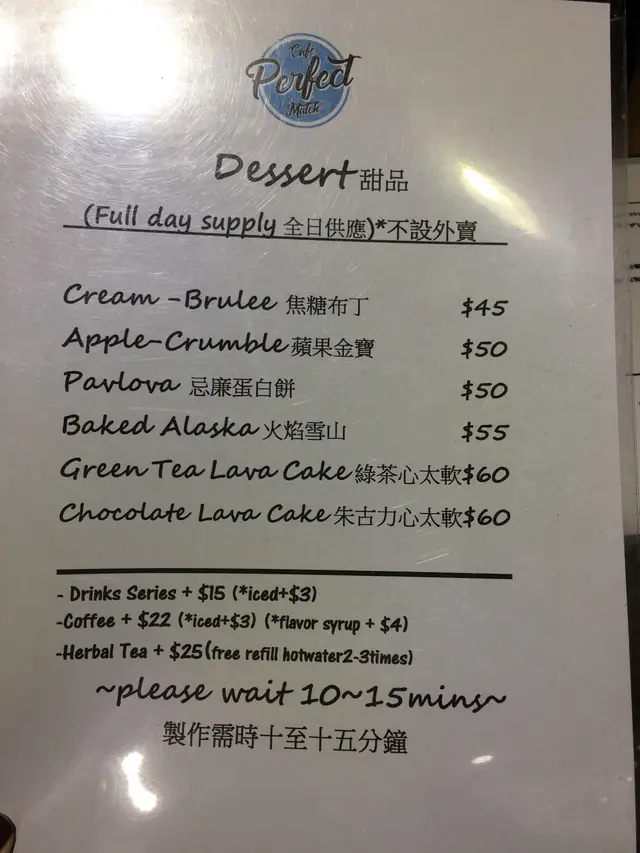 Cafe
Perfect
Match
Dessert 甜品
(Full day supply 全日供應)*不設外賣
Cream -Brulee 焦糖布丁 $45
Apple-Crumble 蘋果金寶 $50
Pavlova 忌廉蛋白餅 $50
Baked Alaska 火焰雪山 $55
Green Tea Lava Cake 綠茶心太軟 $60
Chocolate Lava Cake 朱古力心太軟 $60
- Drinks Series + $15 (*iced+$3)
-Coffee + $22 (*iced+$3) (*flavor syrup + $4)
-Herbal Tea + $25(free refill hotwater2-3times)
~please wait 10~15mins~
製作需時十至十五分鐘